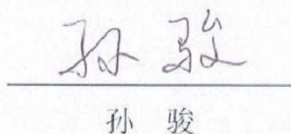 孙骏
孙 骏